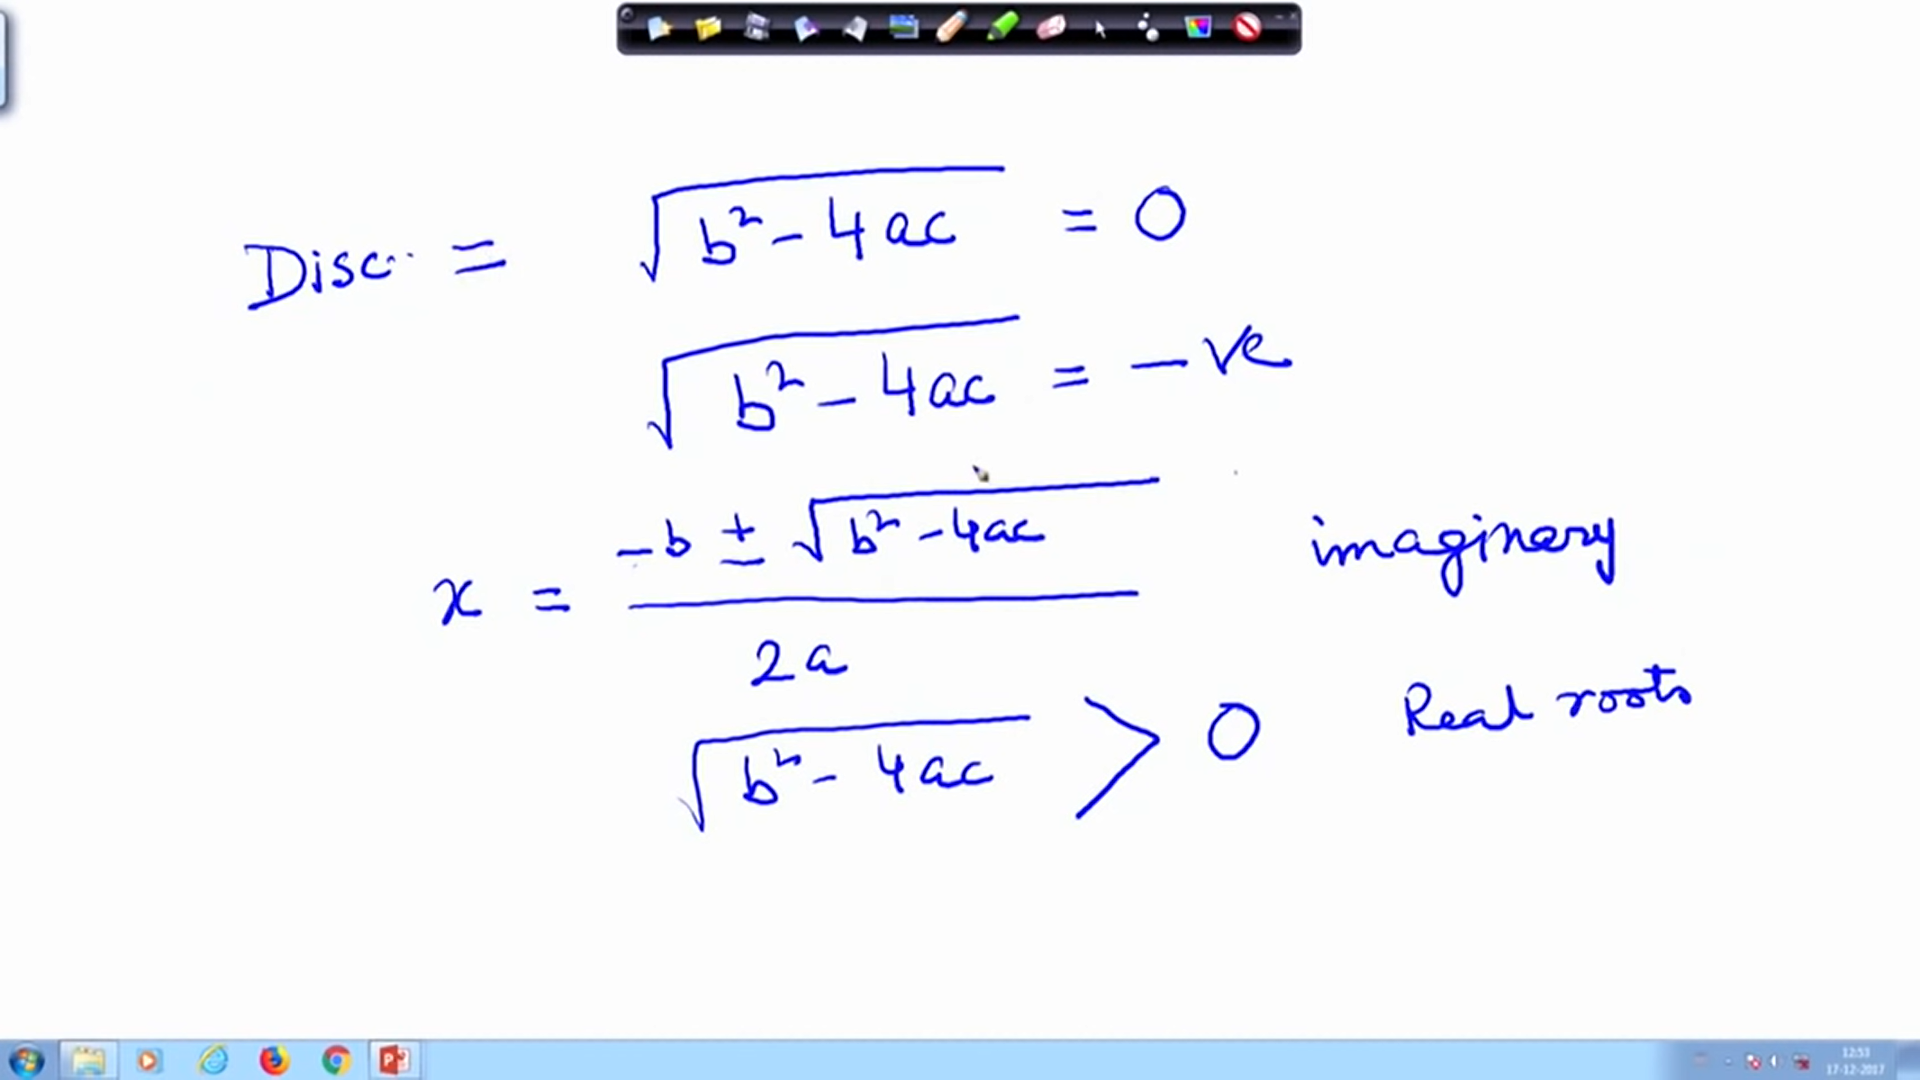 Disc. = √(b² - 4ac) = 0
√(b² - 4ac) = -ve
x = (-b ± √(b² - 4ac)) / 2a
imaginary
√(b² - 4ac) > 0 Real roots
12:53
17-12-2017